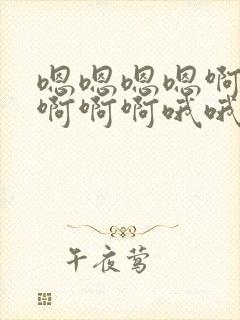 嗯嗯嗯嗯啊
啊啊啊哦哦
午夜莺